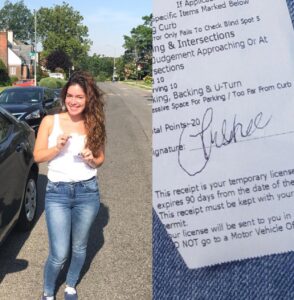 If Applicable
Specific Items Marked Below
g Curb
or Only Fails To Check Blind Spot 5
ng & Intersections
Judgement Approaching Or At
sections
10
rving 10
ing, Backing & U-Turn
essive Space For Parking / Too Far From Curb
tal Points:-20
ignature:
This receipt is your temporary license
expires 90 days from the date of the
This receipt must be kept with your
permit.
ur license will be sent to you in
DO NOT go to a Motor Vehicle Of